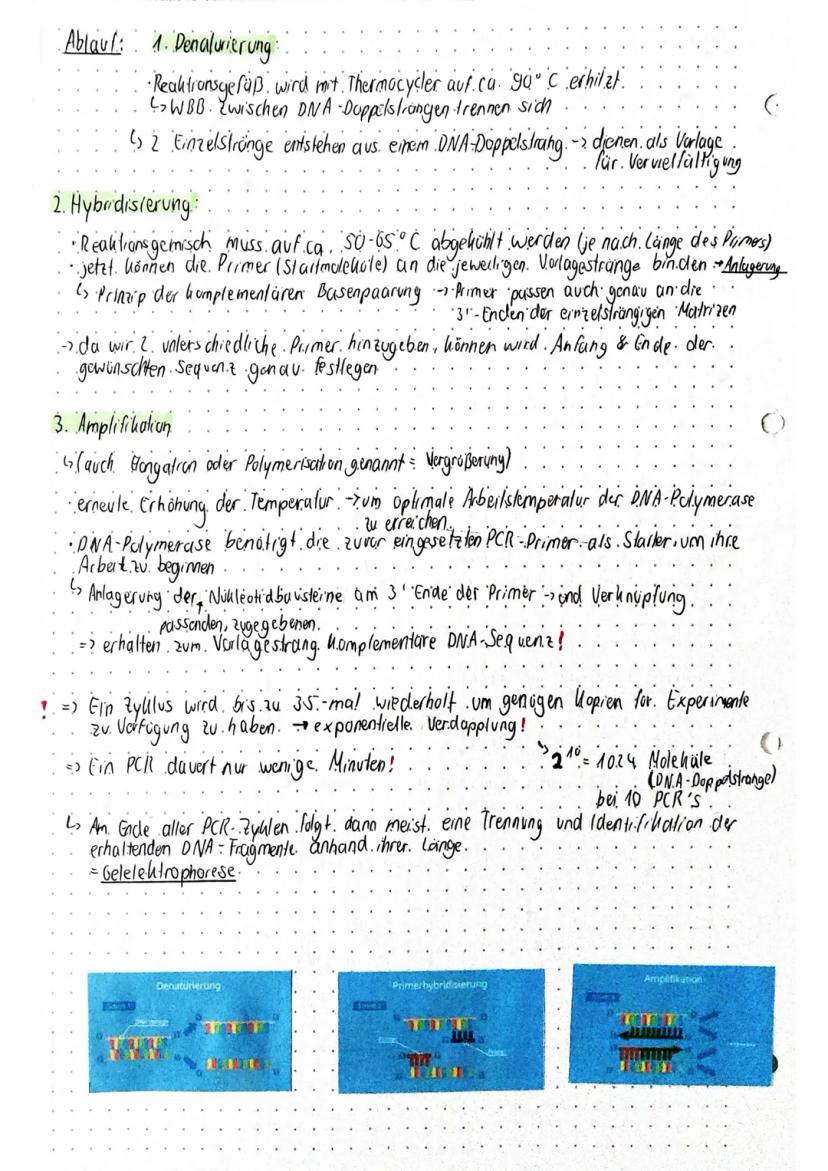 Ablauf: 1. Denaturierung:
· Reaktionsgefäß wird mit Thermocycler auf ca. 90°C erhitzt.
↳ WBB zwischen DNA-Doppelsträngen trennen sich
↳ 2 Einzelstränge entstehen aus einem DNA-Doppelstrang → dienen als Vorlage
für Vervielfältigung
2. Hybridisierung:
· Reaktionsgemisch muss auf ca. 50-65°C abgekühlt werden (je nach Länge des Primers)
· jetzt können die Primer (Startmoleküle) an die jeweiligen Vorlagestränge binden → Anlagerung
↳ Prinzip der komplementären Basenpaarung → Primer passen auch genau an die
3'-Enden der einzelsträngigen Matrizen
→ da wir 2 unterschiedliche Primer hinzugeben, können wird Anfang & Ende der
gewünschten Sequenz genau festlegen
3. Amplifikation
↳ (auch Elongation oder Polymerisation genannt = Vergrößerung)
· erneute Erhöhung der Temperatur → um optimale Arbeitstemperatur der DNA-Polymerase
zu erreichen.
· DNA-Polymerase benötigt die zuvor eingesetzten PCR-Primer als Starter, um ihre
Arbeit zu beginnen
↳ Anlagerung der Nukleotidbausteine am 3' Ende der Primer → und Verknüpfung
passenden, zugegebenen
=> erhalten zum Vorlagestrang komplementäre DNA-Sequenz!
! => Ein Zyklus wird bis zu 35-mal wiederholt um genügen Kopien für Experimente
zu Verfügung zu haben. → exponentielle Verdopplung!
=> Ein PCR dauert nur wenige Minuten!
↳ 2^10 = 1024 Moleküle
(DNA-Doppelstränge)
bei 10 PCR's
↳ Am Ende aller PCR-Zyklen folgt dann meist eine Trennung und Identifikation der
erhaltenden DNA-Fragmente anhand ihrer Länge.
= Gelelektrophorese
Denaturierung
Primerhybridisierung
Amplifikation